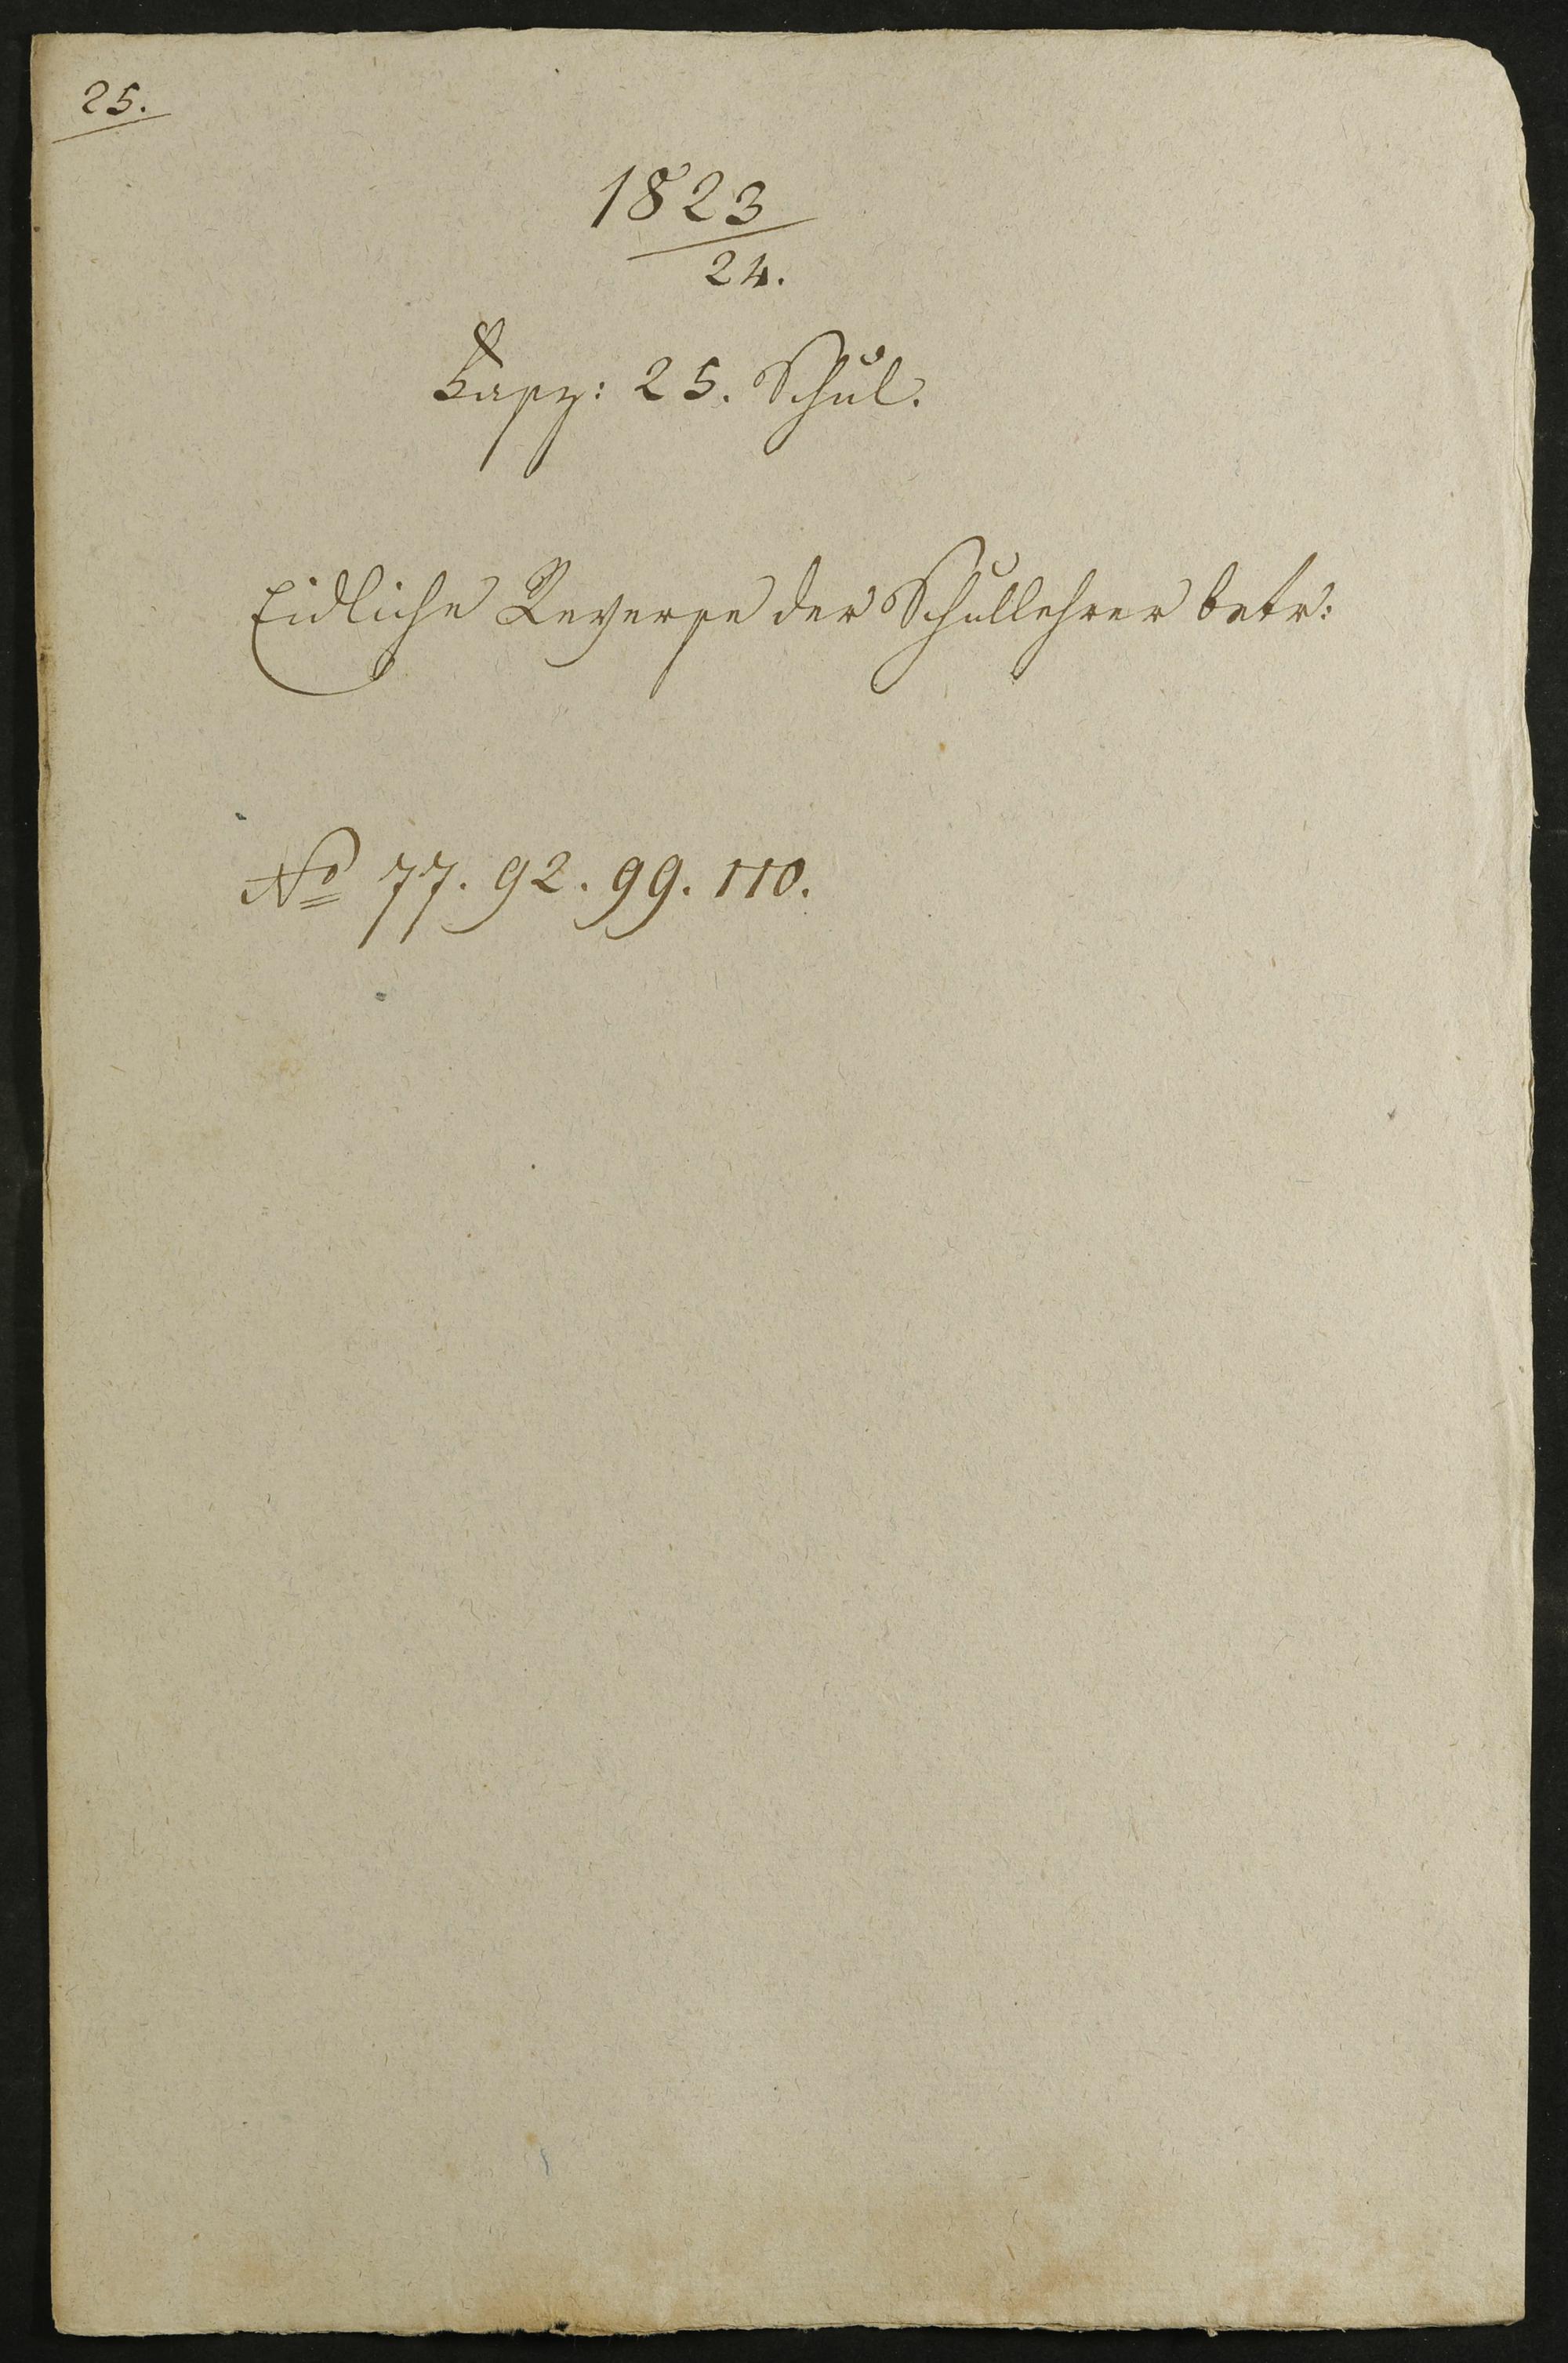 25.
1823
24.
Fasz: 25. Schul.
Eidliche Reverse der Schullehrer betr:
No 77. 92. 99. 110.